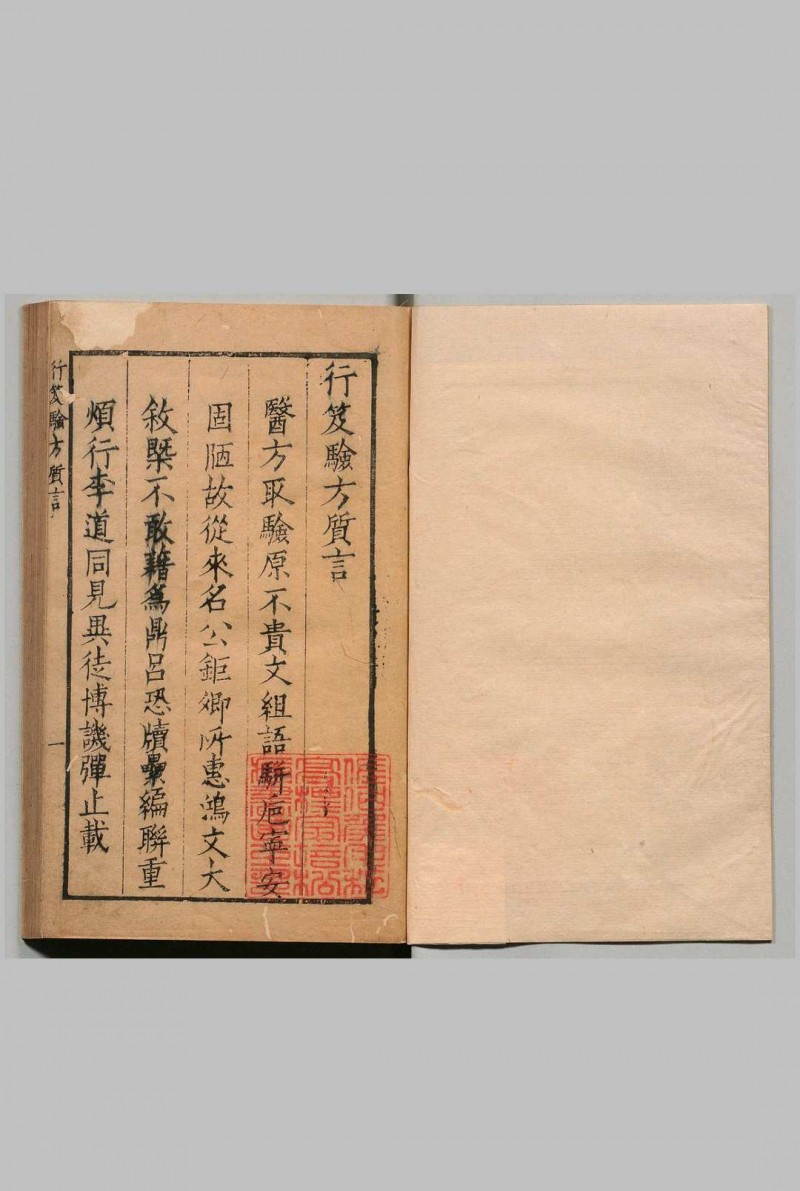 行笈驗方質言
醫方取驗原不貴文組語駢巵寧安
固陋故從來名公鉅卿所惠鴻文大
敘槩不敢藉為鼎呂恐牘纍編聯重
煩行李道同見異徒博譏彈止載
行笈驗方質言
一